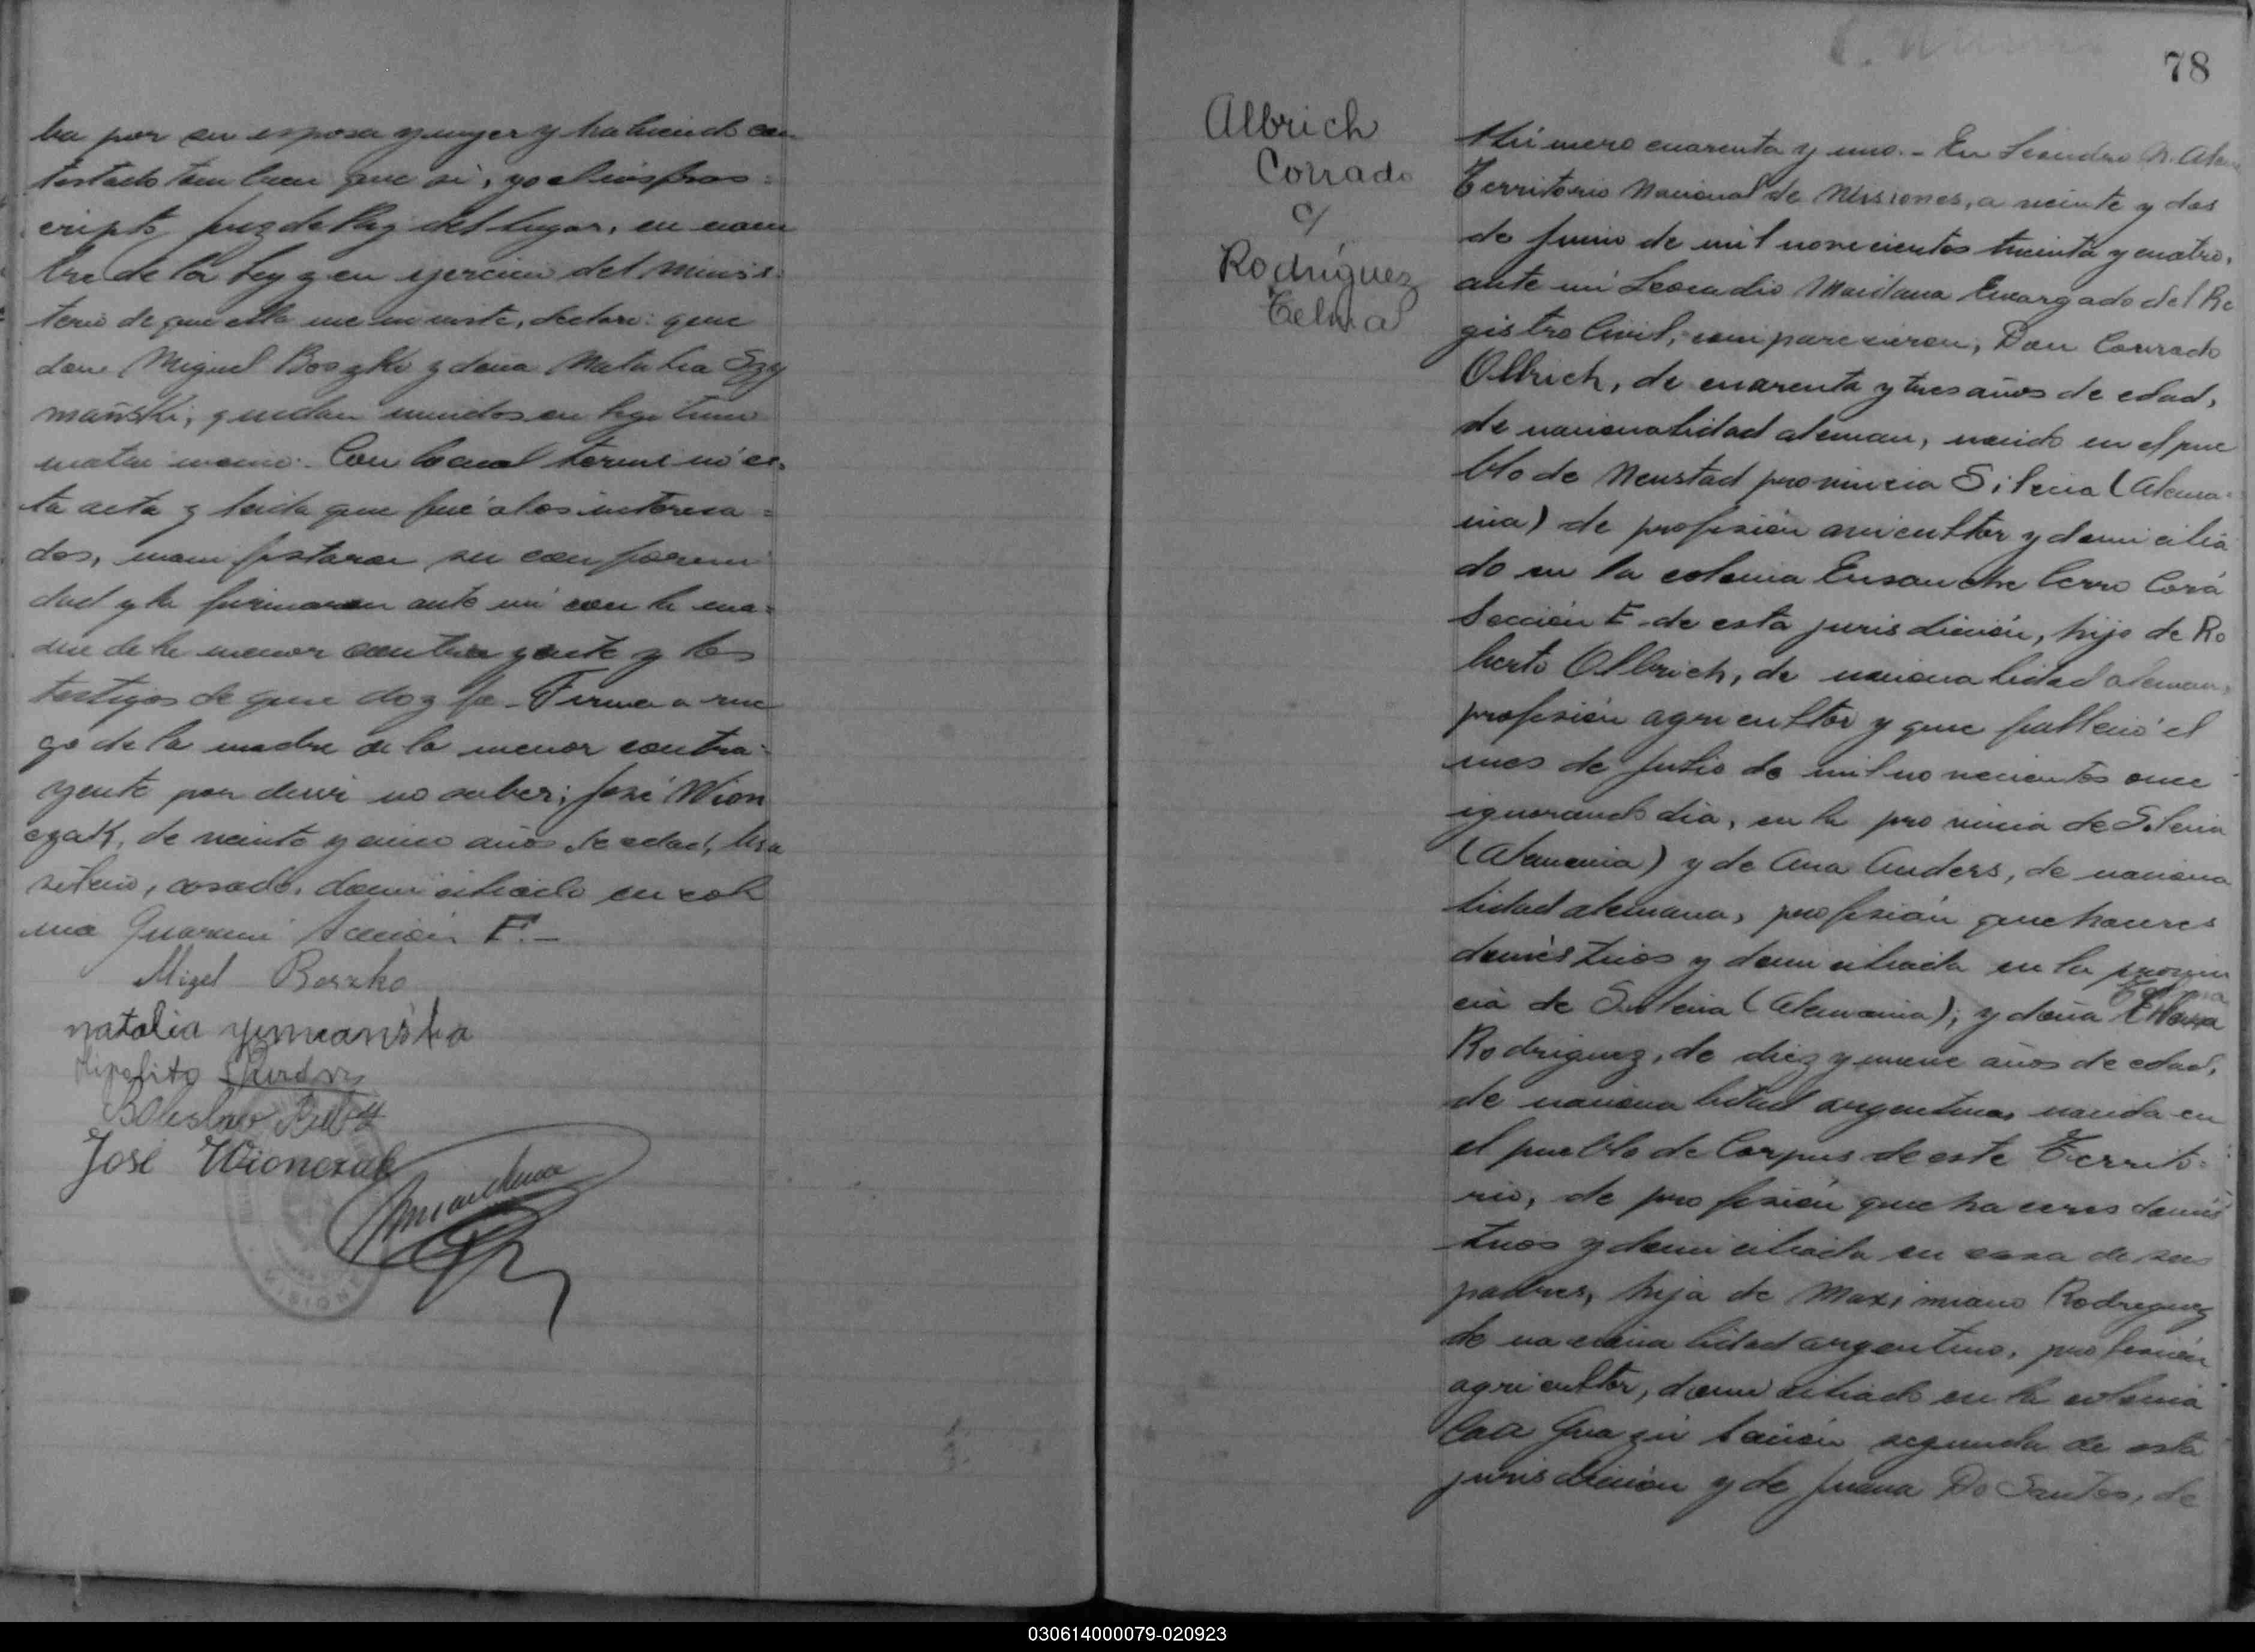 ba por su esposa y muger y habiendo con
testado tambien que sí, yo el infras=
cripto Juez de Paz del lugar, en nom
bre de la Ley y en ejercicio del minis-
terio de que ella me inviste, declaro: que
don Miguel Boszko y doña Natalia Szy
mañski, quedan unidos en legitimo
matrimonio. Con lo cual terminó es-
ta acta y leida que fué a los interesa=
dos, manifestaron su conformi
dad y la firmaron ante mi con la ma=
dre de la menor contrayente y los
testigos de que doy fe. Firma a rue
go de la madre de la menor contra-
yente por decir no saber; José Wion
czak, de veinte y cinco años de edad, bra
sileño, casado, domiciliado en colo
nia Guaraní Sección F.-
Migel Boszko
natalia
Hipolito
Boleslao
José Wionczak
MISIONE
78
Albrich
Corrado
c/
Rodríguez
Telma
Número cuarenta y uno.- En Leandro N. Alem
Territorio Nacional de Misiones, a veinte y dos
de Junio de mil novecientos treinta y cuatro,
ante mí Leocadio Maidana Encargado del Re
gistro Civil, comparecieron; Don Conrado
Olbrich, de cuarenta y tres años de edad,
de nacionalidad aleman, nacido en el pue
blo de Neustad provincia Silecia (Alema-
nia) de profesión agricultor y domicilia
do en la colonia Ensanche Cerro Corá
Sección F. de esta jurisdicción, hijo de Ro
berto Olbrich, de nacionalidad aleman,
profesión agricultor y que falleció el
mes de Julio de mil novecientos once
ignorando dia, en la provincia de Silecia
(Alemania) y de Ana Anders, de naciona
lidad alemana, profesión quehaceres
domésticos y domiciliada en la provin
cia de Silecia (Alemania); y doña Telma
Rodriguez, de diez y nueve años de edad,
de nacionalidad argentina, nacida en
el pueblo de Corpus de este Territo=
rio, de profesión quehaceres domés
ticos y domiciliada en casa de sus
padres, hija de Maximiano Rodriguez
de nacionalidad argentino, profesión
agricultor, domiciliado en la colonia
Caa Guazú Sección segunda de esta
jurisdicción y de Juana Do Santos, de
030614000079-020923